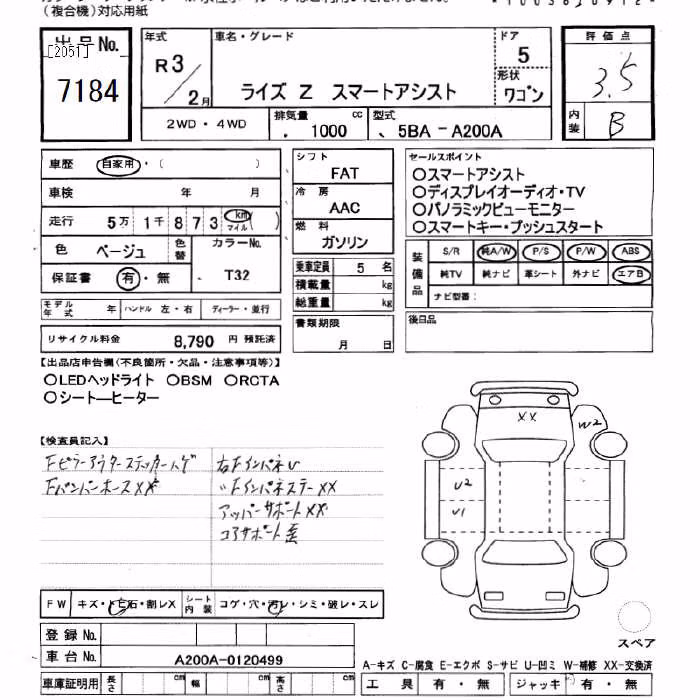 (複合機)対応用紙
出品No.
[2051]
7184
年式
R3/2月
車名・グレード
ライズ Z スマートアシスト
ドア
5
形状
ワゴン
評価点
3.5
内装
B
2WD・4WD
排気量
1000 cc
型式
5BA-A200A
車歴
自家用・( )
車検 年 月
走行 5万1千873 km マイル ( )
色 ベージュ 色替
カラーNo.
T32
保証書 有・無
モデル年式 年 ハンドル 左・右 ディーラー・並行
リサイクル料金 8,790 円 預託済
シフト
FAT
冷房
AAC
燃料
ガソリン
乗車定員 5 名
積載量 kg
総重量 kg
書類期限
月 日
セールスポイント
○スマートアシスト
○ディスプレイオーディオ・TV
○パノラミックビューモニター
○スマートキー・プッシュスタート
装備品
S/R 純A/W P/S P/W ABS
純TV 純ナビ 革シート 外ナビ エアB
ナビ型番:
後日品
【出品店申告欄(不良箇所・欠品・注意事項等)】
○LEDヘッドライト ○BSM ○RCTA
○シート―ヒーター
【検査員記入】
Fピラーアウターステッカーハゲ
FバンパーホースXX
右FインパネU
〃FインパネステーXX
アッパーサポートXX
コアサポート歪
XX
W2
U2
U1
FW キズ・トビ石・割レX シート内装 コゲ・穴・汚レ・シミ・破レ・スレ
登録No.
車台No. A200A-0120499
車庫証明用 長さ cm 幅 cm 高さ cm
スペア
A-キズ C-腐食 E-エクボ S-サビ U-凹ミ W-補修 XX-交換済
工具 有・無 ジャッキ 有・無